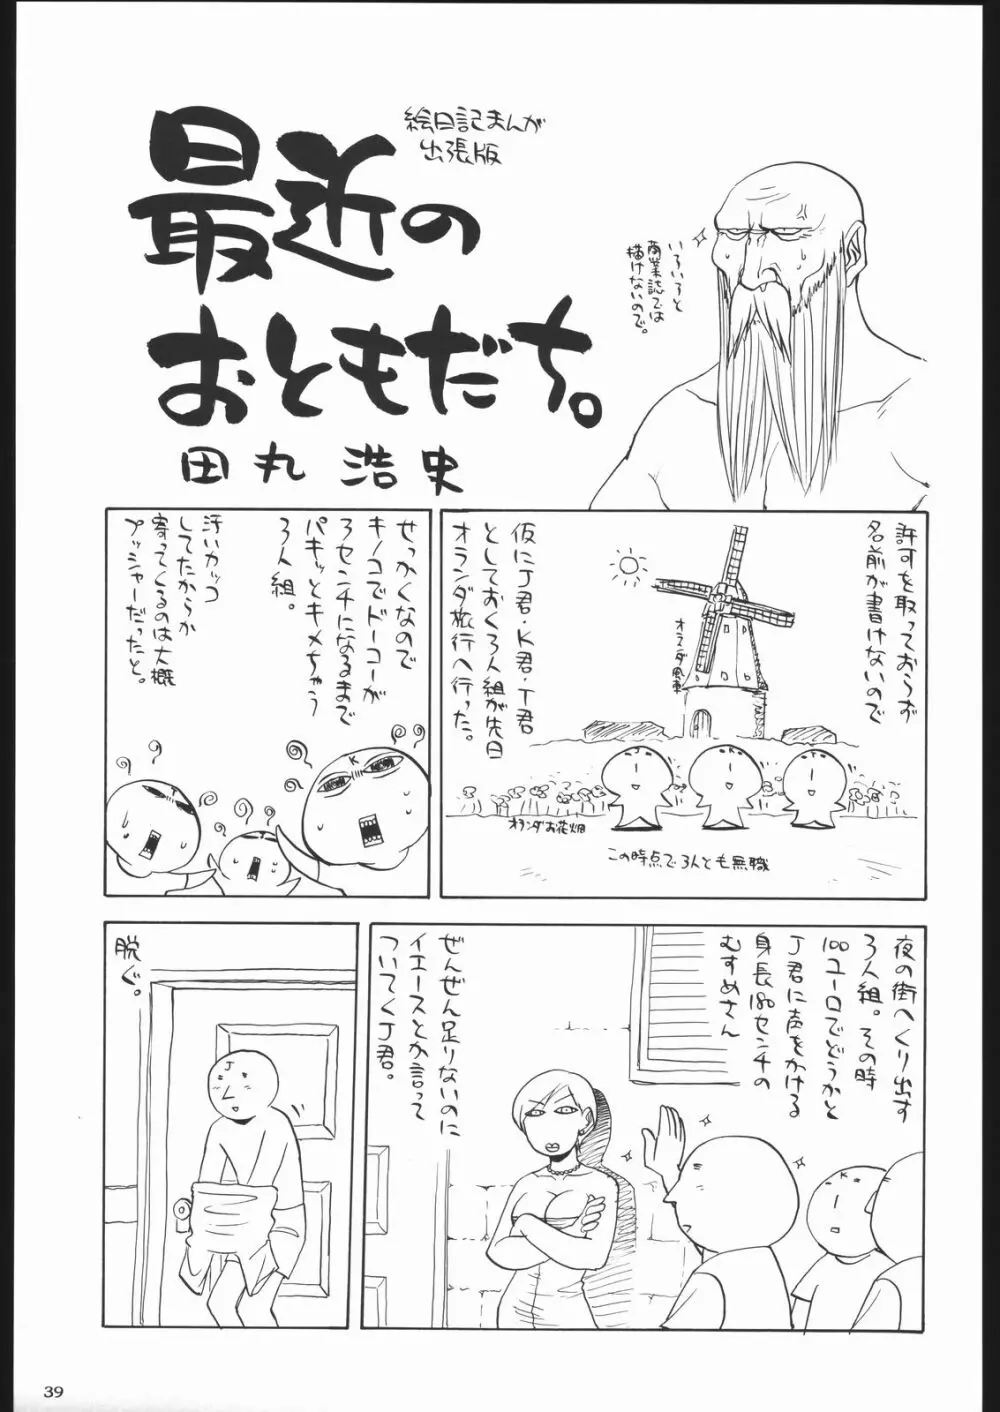 絵日記まんが
出張版
最近の
おともだち。
田丸 浩史
いろいろと
商業誌では
描けないので。
許可を取っておらず
名前が書けないので
仮にJ君・K君・T君
としておく3人組が先日
オランダ旅行へ行った。
オランダ風車
J
K
T
オランダお花畑
この時点で3人とも無職
せっかくなので
キノコでドーコーが
3センチになるまで
パキッとキメちゃう
3人組。
汚いカッコ
してたからか
寄ってくるのは大概
プッシャーだったと。
T
K
夜の街へくり出す
3人組。その時
100ユーロでどうかと
J君に声をかける
身長180センチの
むすめさん
ぜんぜん足りないのに
イエースとか言って
ついてくJ君。
K
脱ぐ。
J
39